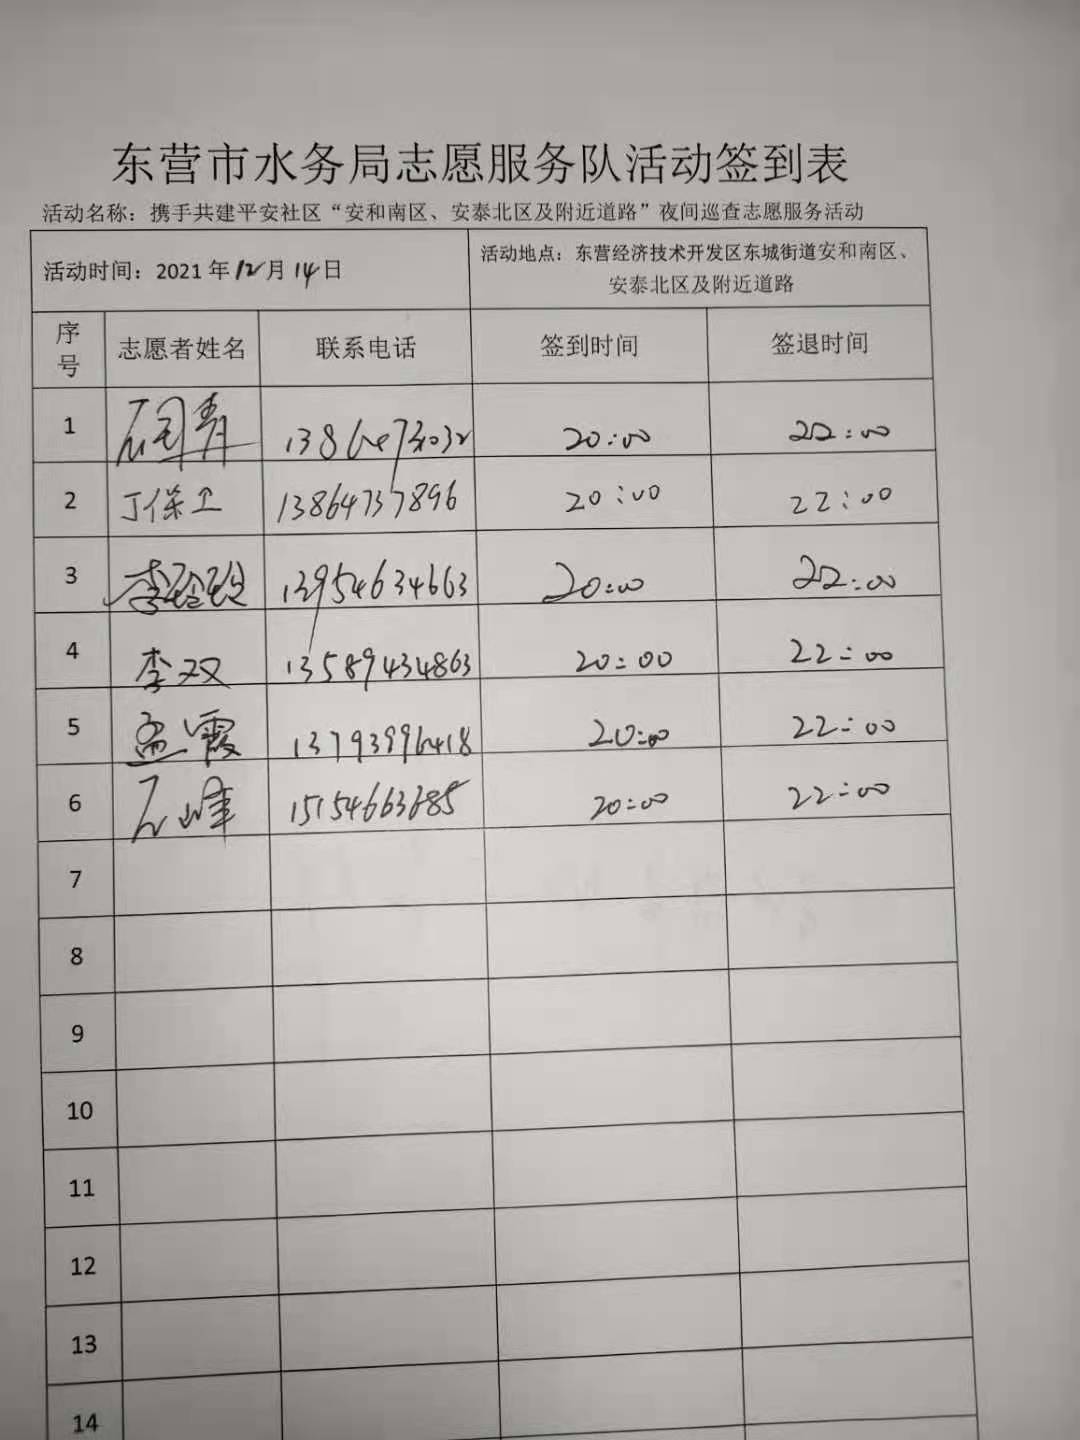 东营市水务局志愿服务队活动签到表
活动名称：携手共建平安社区“安和南区、安泰北区及附近道路”夜间巡查志愿服务活动
活动时间：2021年12月14日
活动地点：东营经济技术开发区东城街道安和南区、
安泰北区及附近道路
序号 志愿者姓名 联系电话 签到时间 签退时间
1 20:00 22:00
2 丁保卫 13864737896 20:00 22:00
3 13954634663 20:00 22:00
4 李双 13589434863 20:00 22:00
5 孟霞 13793996418 20:00 22:00
6 石峰 15154663685 20:00 22:00
7
8
9
10
11
12
13
14